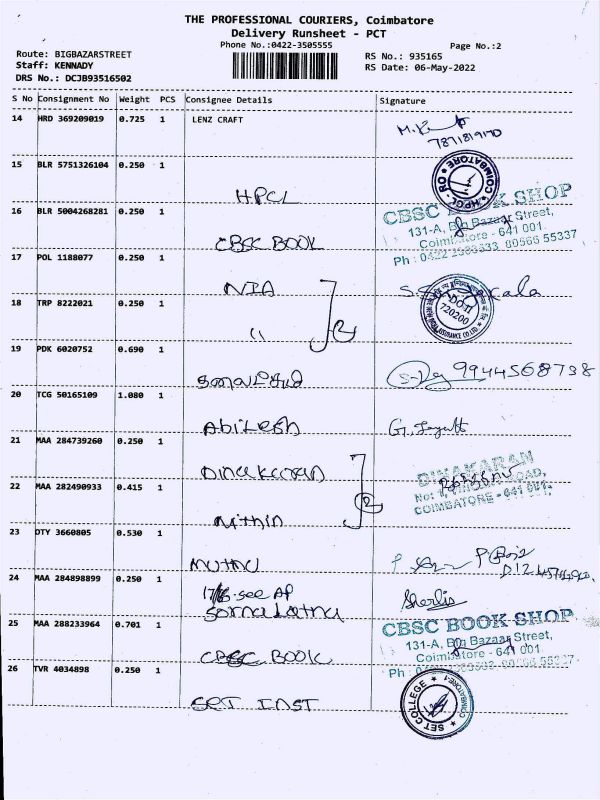 THE PROFESSIONAL COURIERS, Coimbatore
Delivery Runsheet - PCT
Phone No.:0422-3505555
Page No.:2
Route: BIGBAZARSTREET
Staff: KENNADY
DRS No.: DCJB93516502
RS No.: 935165
RS Date: 06-May-2022
S No Consignment No Weight PCS Consignee Details Signature
14 HRD 369209019 0.725 1 LENZ CRAFT
7871819170
15 BLR 5751326104 0.250 1 HPCL
HPCL - RO COIMBATORE
16 BLR 5004268281 0.250 1 CBSC BOOK
CBSC BOOK SHOP
131-A, Big Bazaar Street,
Coimbatore - 641 001.
Ph : 0422 80566 55337
17 POL 1188077 0.250 1 NIA
18 TRP 8222021 0.250 1 "
720200
19 PDK 6020752 0.690 1
9944568738
20 TCG 50165109 1.080 1 Abilesh
21 MAA 284739260 0.250 1 Dinakaran
DINAKARAN
COIMBATORE - 641 001.
22 MAA 282490933 0.415 1 Nithin
23 DTY 3660805 0.530 1 Muthu
24 MAA 284898899 0.250 1
25 MAA 288233964 0.701 1 CBSC BOOK
CBSC BOOK SHOP
131-A, Big Bazaar Street,
Coimbatore - 641 001
26 TVR 4034898 0.250 1 SET INST
SET COLLEGE COIMBATORE-1